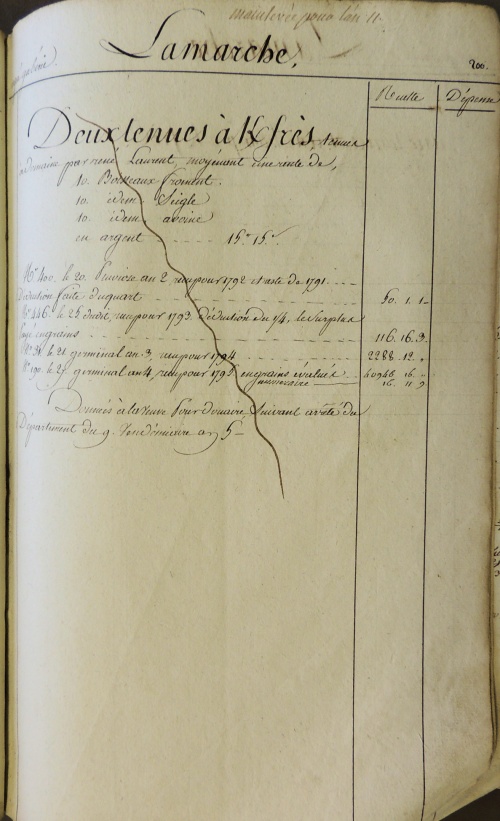 mainlevée pour l'an 11.
Lamarche,
200.
Recette Dépense
Deux tenues à K/frès, tenues
à domaine par rené Laurent, moyénant une rente de,
10. Boisseaux froment.
10. idem Seigle
10. idem avoine
en argent . . . . 15.tt 15.s
N.o 400. le 20. Pluviose an 2 reçu pour 1792 et reste de 1791 . . .
Déduction faite du quart . . . 50. 1. 1.
N.o 446. le 25 dudit, reçu pour 1793. Déduction du 1/4, le Surplus
payé en grains . . . 116. 16. 3.
N.o 31. le 21 germinal an 3, reçu pour 1794 . . . 2288. 12. "
N.o 190. le 27 germinal an 4, reçu pour 1795 en grains évalués . . 40948. 16. "
numéraire 16. 11. 9
Données à la veuve pour douaire, suivant arrêté du
Département du 9. Vendémiaire an 5 -